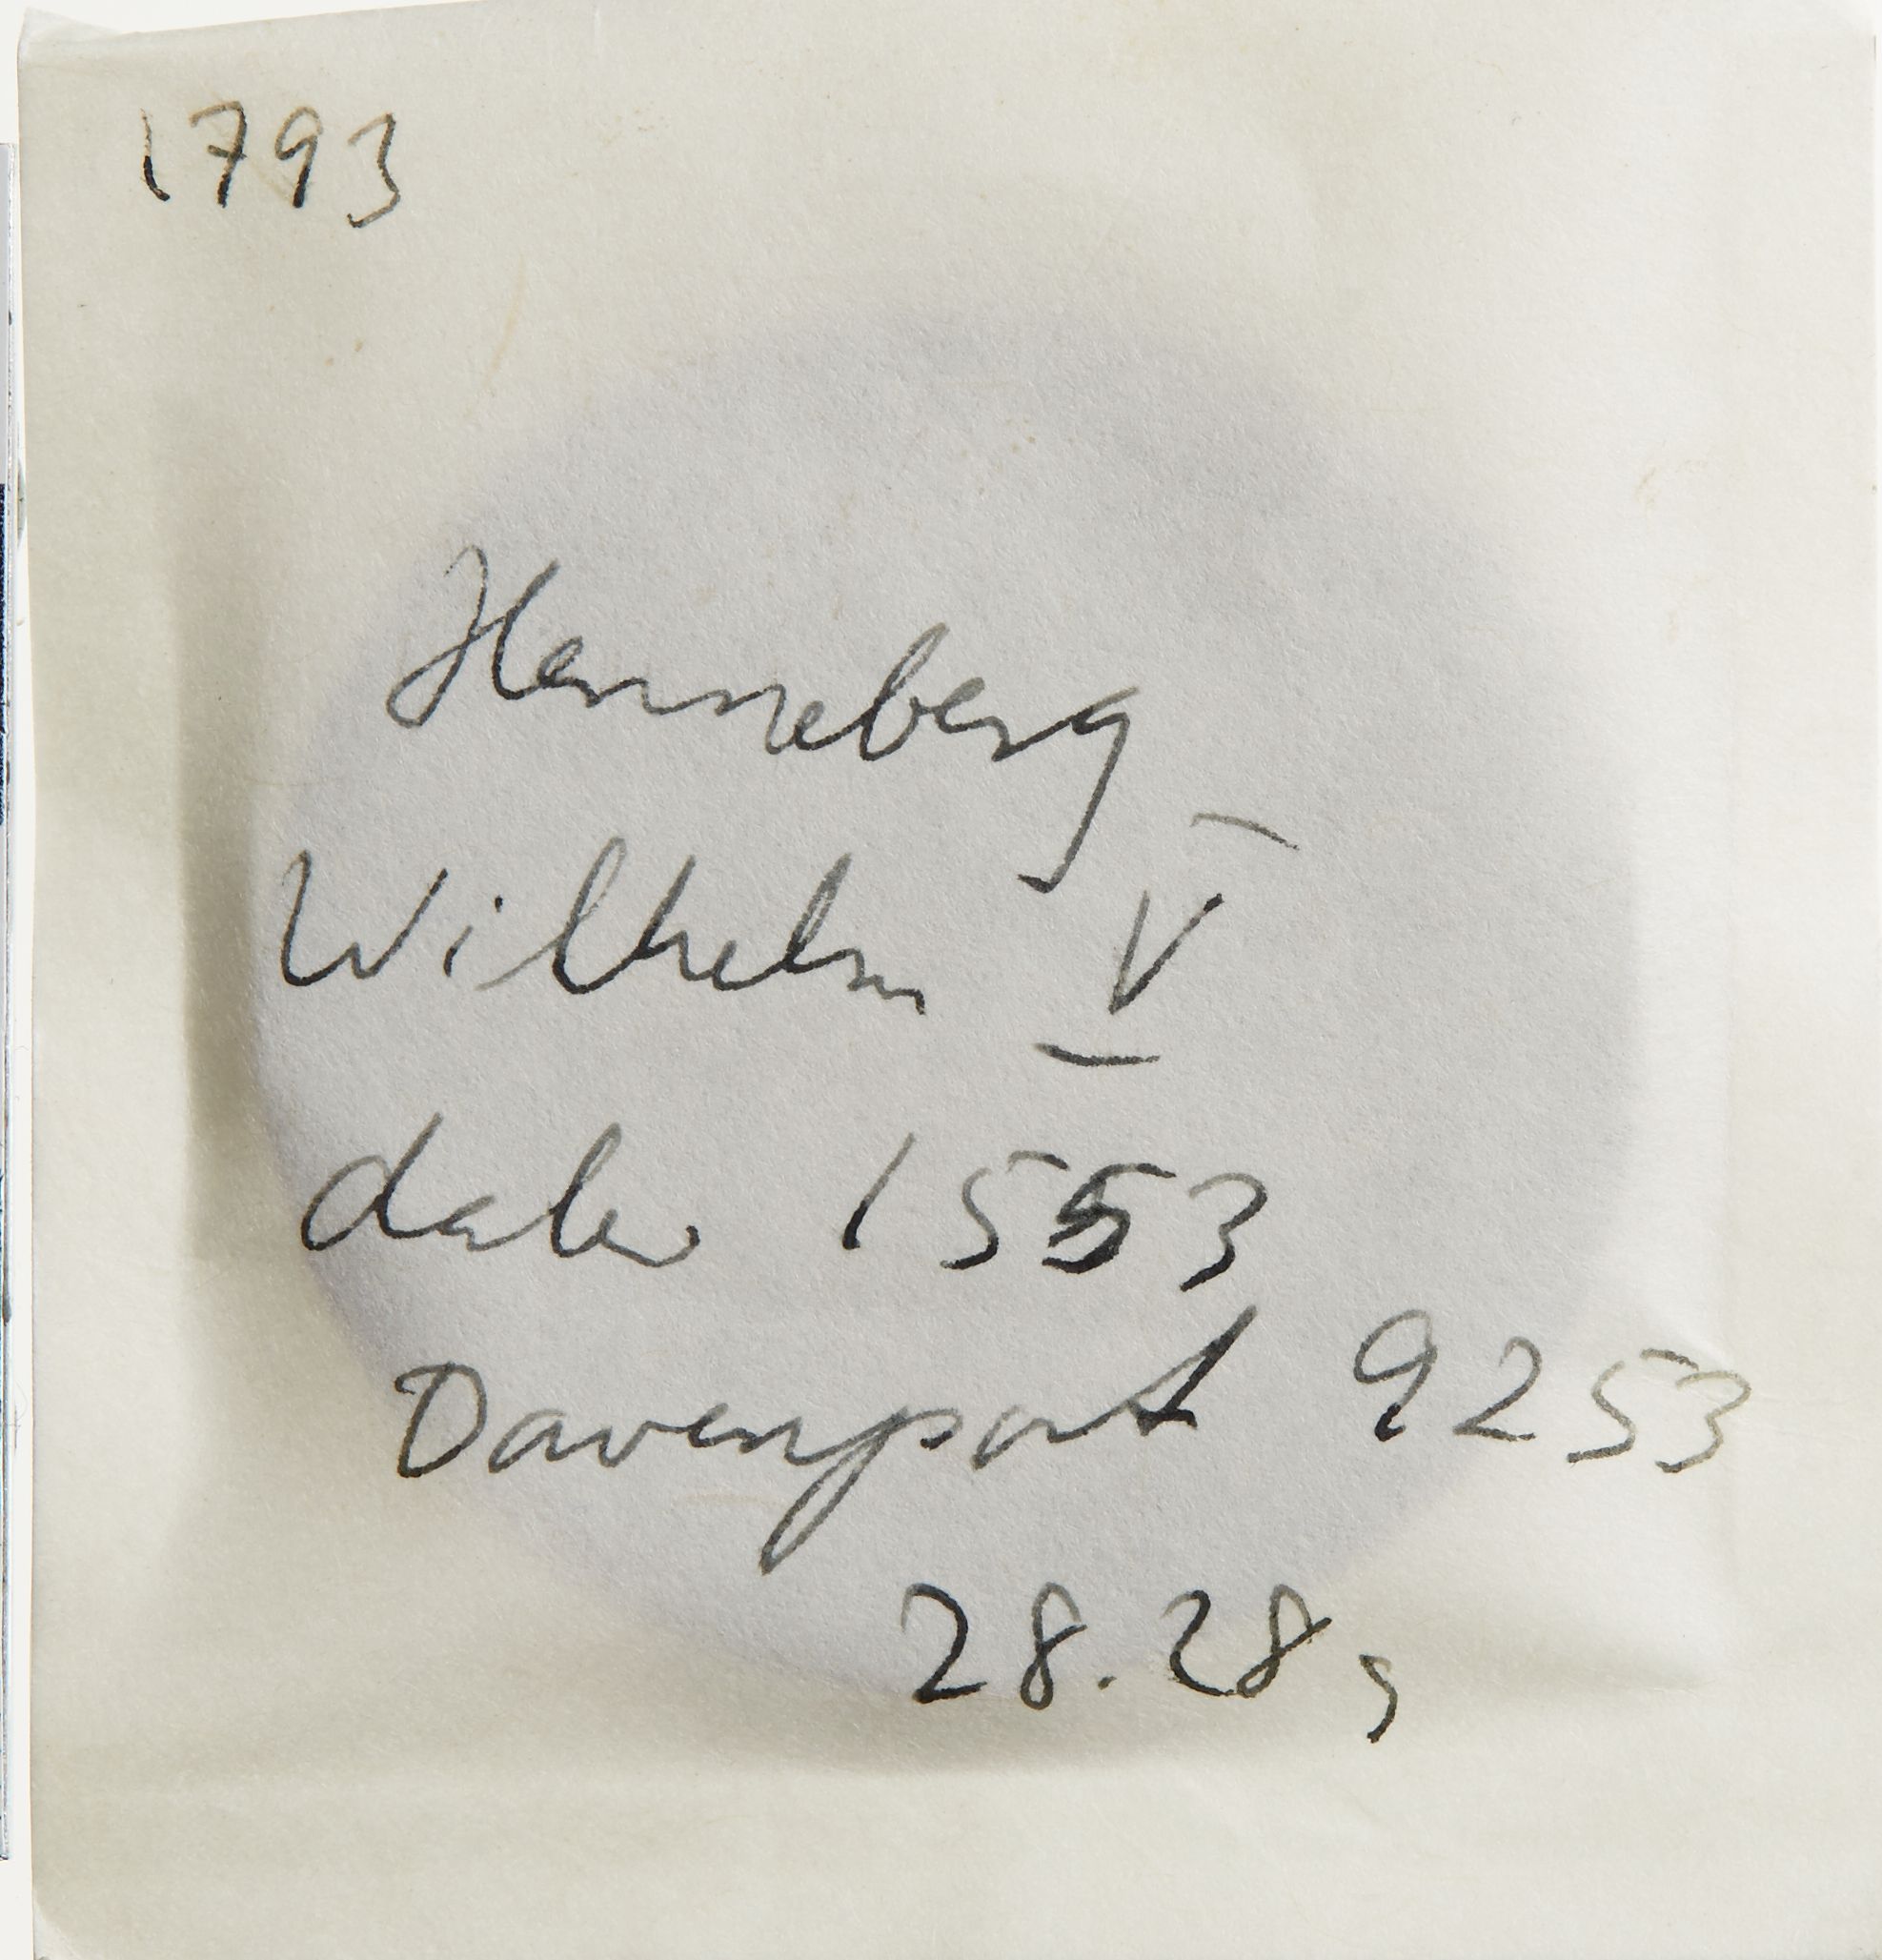 1793
Henneberg
Wilhelm V
daler 1553
Davenport 9253
28.28g